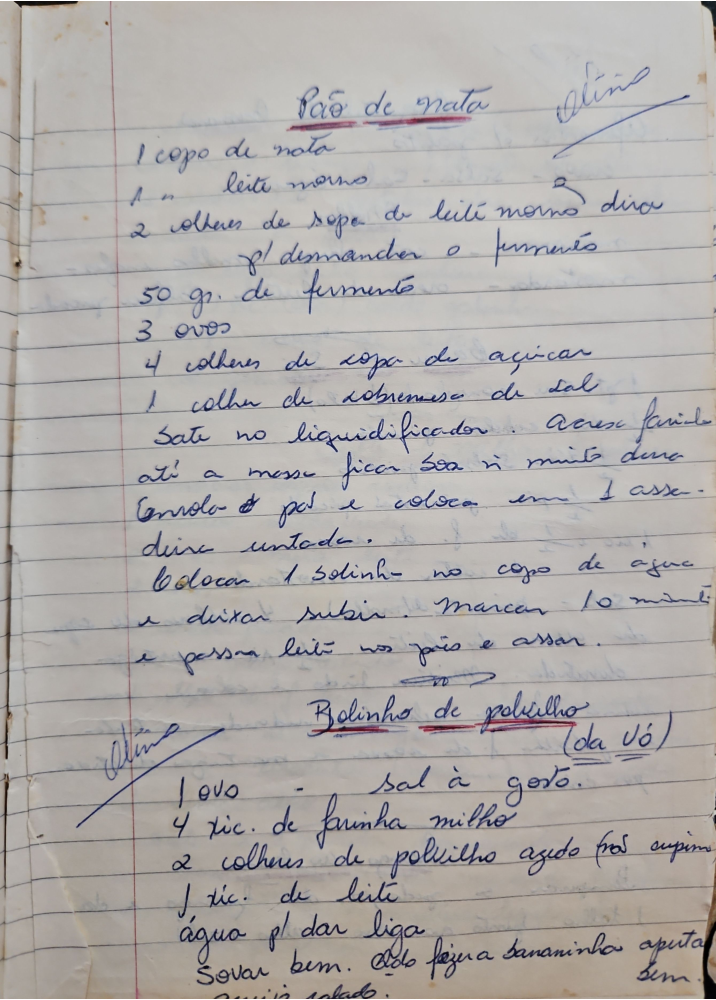 Pão de nata
Ótimo
1 copo de nata
1 " leite morno
2 colheres de sopa de leite morno
p/ desmanchar o fermento
50 gr. de fermento
3 ovos
4 colheres de sopa de açúcar
1 colher de sobremesa de sal
Bate no liquidificador. Acresc farinha
até a massa ficar boa ñ muito dura
Enrola pão e coloca em 1 assa-
deira untada.
Colocar 1 bolinha no copo de água
e deixar subir. Marcar 10 minut
e passar leite nos pães e assar.
Bolinho de polvilho
(da Vó)
Ótimo
1 ovo - sal à gosto.
4 xic. de farinha milho
2 colheres de polvilho azedo
1 xic. de leite
água p/ dar liga
Sovar bem. fazer a bananinha aperta
bem.
salgado.